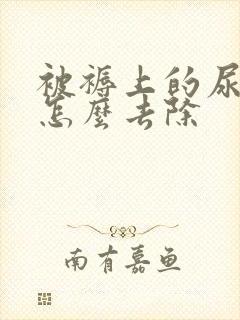 被褥上的尿
怎麼去除
南有嘉鱼